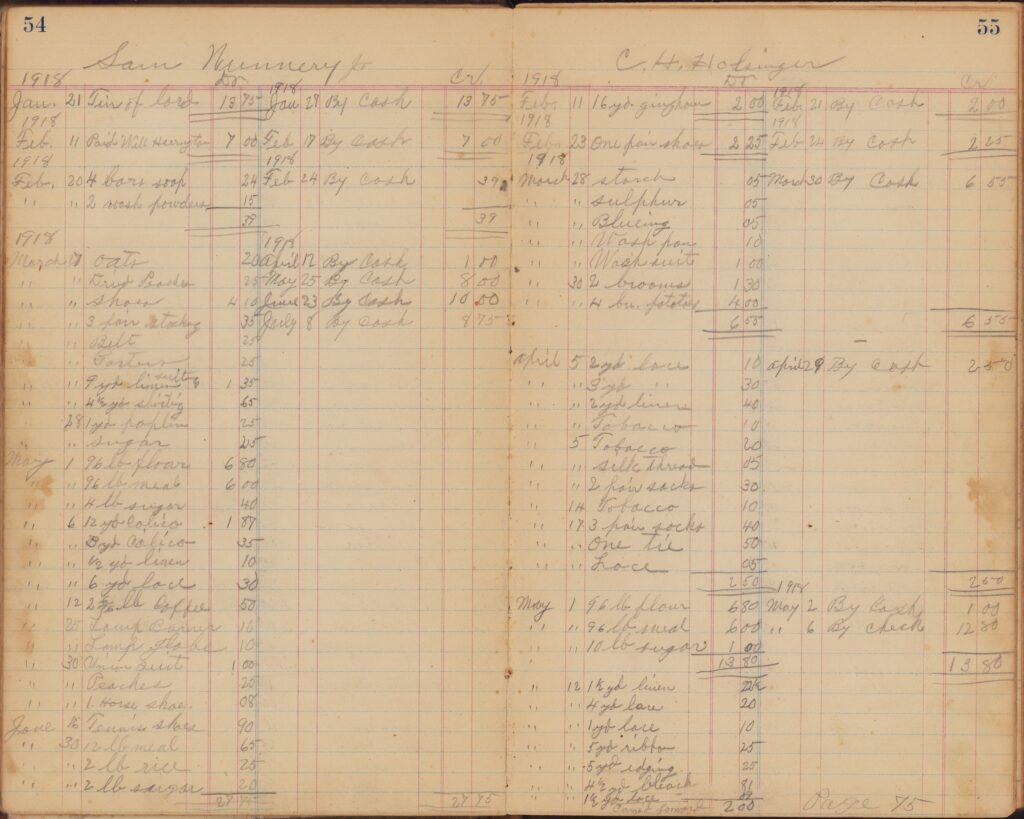 54
Sam Nunnery Jr
1918 Dr 1918 Cr
Jan. 21 Tin of lard 13 75 Jan 29 By Cash 13 75
1918 1918
Feb. 11 Paid Will Herrington 7 00 Feb 17 By Cash 7 00
1918 1918
Feb. 20 4 bars soap 24 Feb 24 By Cash 39
" " 2 wash powders 15
39 39
1918 1918
March oats 20 April 12 By Cash 1 00
" " Dried Peaches 25 May 25 By Cash 8 00
" " Shoes 4 10 June 23 By Cash 10 00
" " 3 pair stocking 35 July 8 By Cash 8 75
" " Belt 25
" " 25
" " 9 yd linen suiting 1 35
" " 4½ yd shirting 65
" 28 1 yd poplin 25
" " sugar 25
May 1 96 lb flour 6 80
" " 96 lb meal 6 00
" " 4 lb sugar 40
" 6 12 yd Calico 1 87
" " 3 yd Calico 35
" " ½ yd linen 10
" " 6 yd lace 30
" 12 lb Coffee 50
" 25 Lamp Burner 10
" " Lamp Globe 10
" 30 Union Suit 1 00
" " Peaches 25
" " 1 Horse shoe 08
June 15 Tennis shoes 90
" 30 12 lb meal 65
" " 2 lb rice 25
" " 2 lb sugar 20
27 75 27 75
55
C. H. Holsinger
1918 Dr 1918 Cr
Feb. 11 16 yd. gingham 2 00 Feb. 21 By Cash 2 00
1918 1918
Feb. 23 One pair shoes 2 25 Feb 24 By Cash 2 25
1918
March 28 starch 05 March 30 By Cash 6 55
" " sulphur 05
" " Blueing 05
" " Wash pan 10
" " Wash suit 1 00
" 30 2 brooms 1 30
" " 4 bu. potatoes 4 00
6 55 6 55
April 5 2 yd lace 10 April 29 By Cash 2 50
" " 3 yd " 30
" " 2 yd linen 40
" " Tobacco 10
" 5 Tobacco 20
" " silk thread 05
" " 2 pair socks 30
" 14 Tobacco 10
" 17 3 pair socks 40
" " One tie 50
" " Lace 05
2 50 1918 2 50
May 1 96 lb flour 6 80 May 2 By Cash 1 00
" " 96 lb meal 6 00 " 6 By Check 12 80
" " 10 lb sugar 1 00
13 80 13 80
" 12 1½ yd linen 22½
" " 4 yd lace 20
" " 1 yd lace 10
" " 5 yd ribbon 25
" " 5 yd edging 25
" " 4½ yd bleach 81
" " 1½ yd lace
Carried forward 2 00 Page 75